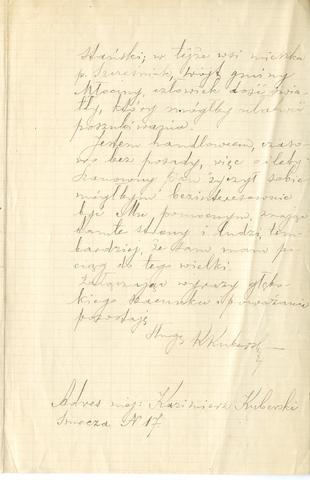 stański; w tejże wsi mieszka
p. Szcześniak, wójt gminy
Młociny, człowiek dość świa-
tły, który mógłby ułatwić
poszukiwania.
Jestem handlowcem, czaso-
wo bez posady, więc o ileby
Szanowny Pan życzył sobie
mógłbym bezinteresownie
być Mu pomocnym, znając
tamte strony i ludzi, tem-
bardziej, że sam mam po-
ciąg do tego wielki.
Załączając wyrazy głębo-
kiego szacunku i poważania
pozostaję
Sługą KKuberski
Adres mój: Kazimierz Kuberski
Smocza N 17